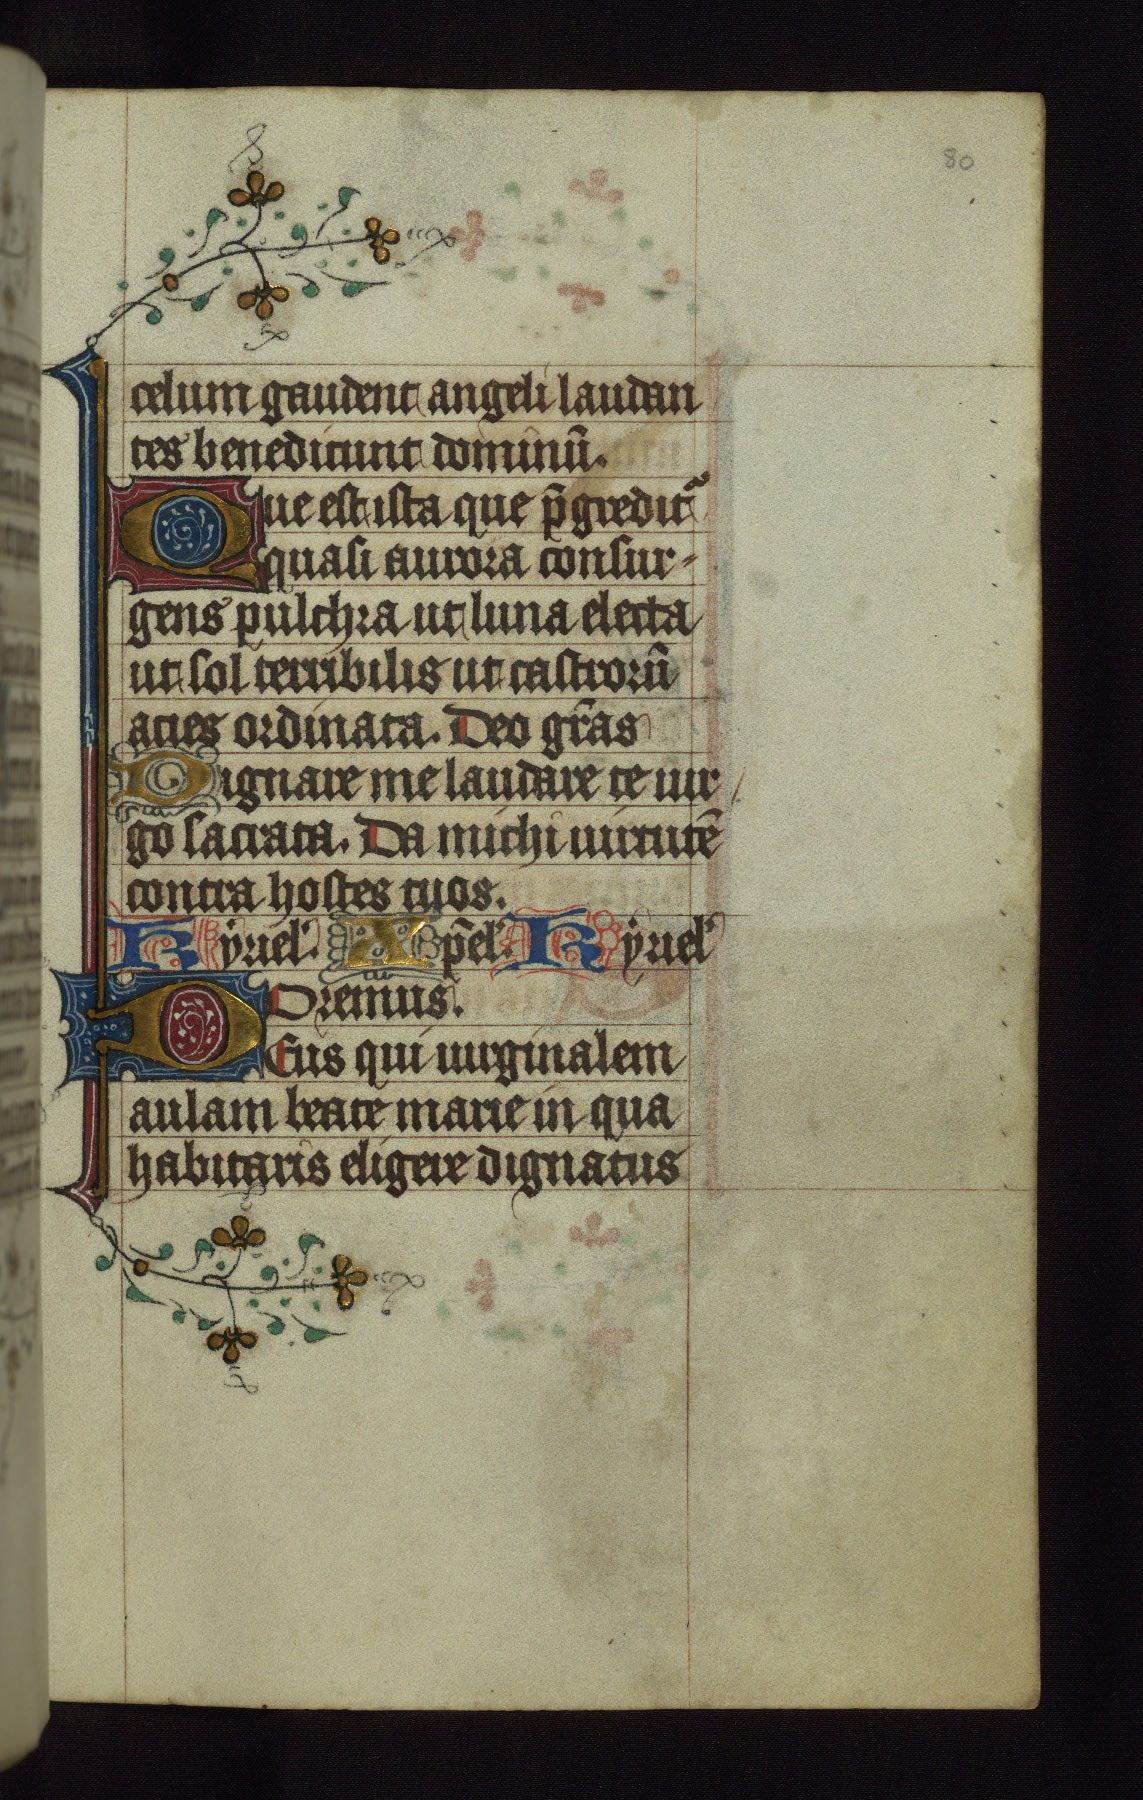 80
celum gaudent angeli laudan
tes benedicunt dominū.
Que est ista que p̄gredit᷑
quasi aurora consur-
gens pulchra ut luna electa
ut sol terribilis ut castrorū
acies ordinata. Deo gr̄as
Dignare me laudare te uir
go sacrata. Da michi uirtutē
contra hostes tuos.
Kyriel'. Xp̄el'. Kyriel'
Oremus.
DEus qui uirginalem
aulam beate marie in qua
habitaris eligere dignatus